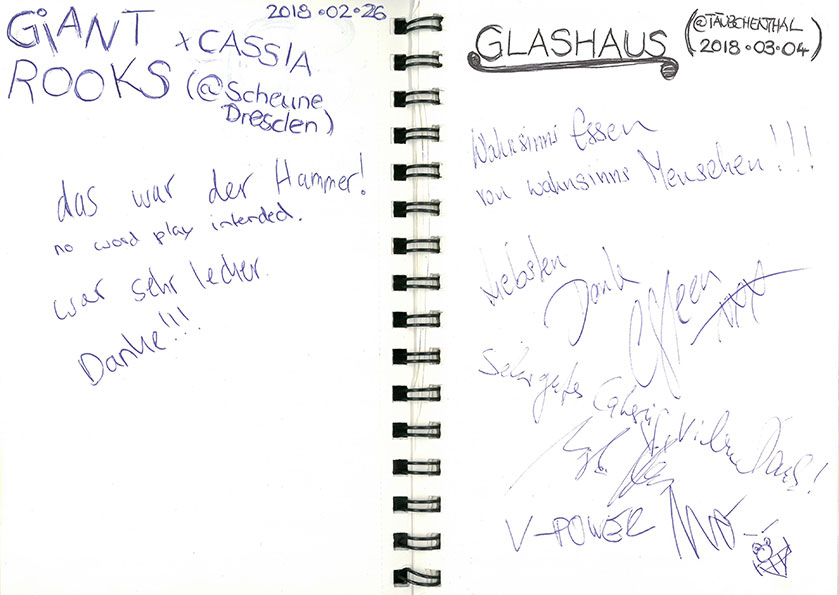 2018.02.26
GiANT x CASSIA
ROOKS (@Scheune
Dresden)
das war der Hammer!
no word play intended.
war sehr lecker.
Danke!!!
GLASHAUS (@TÄUBCHENTHAL
2018.03.04)
Wahnsinns Essen
von wahnsinns Menschen!!!
liebsten
Dank
xxx
Sehr gutes Catering
Vielen Dank!
V-POWER